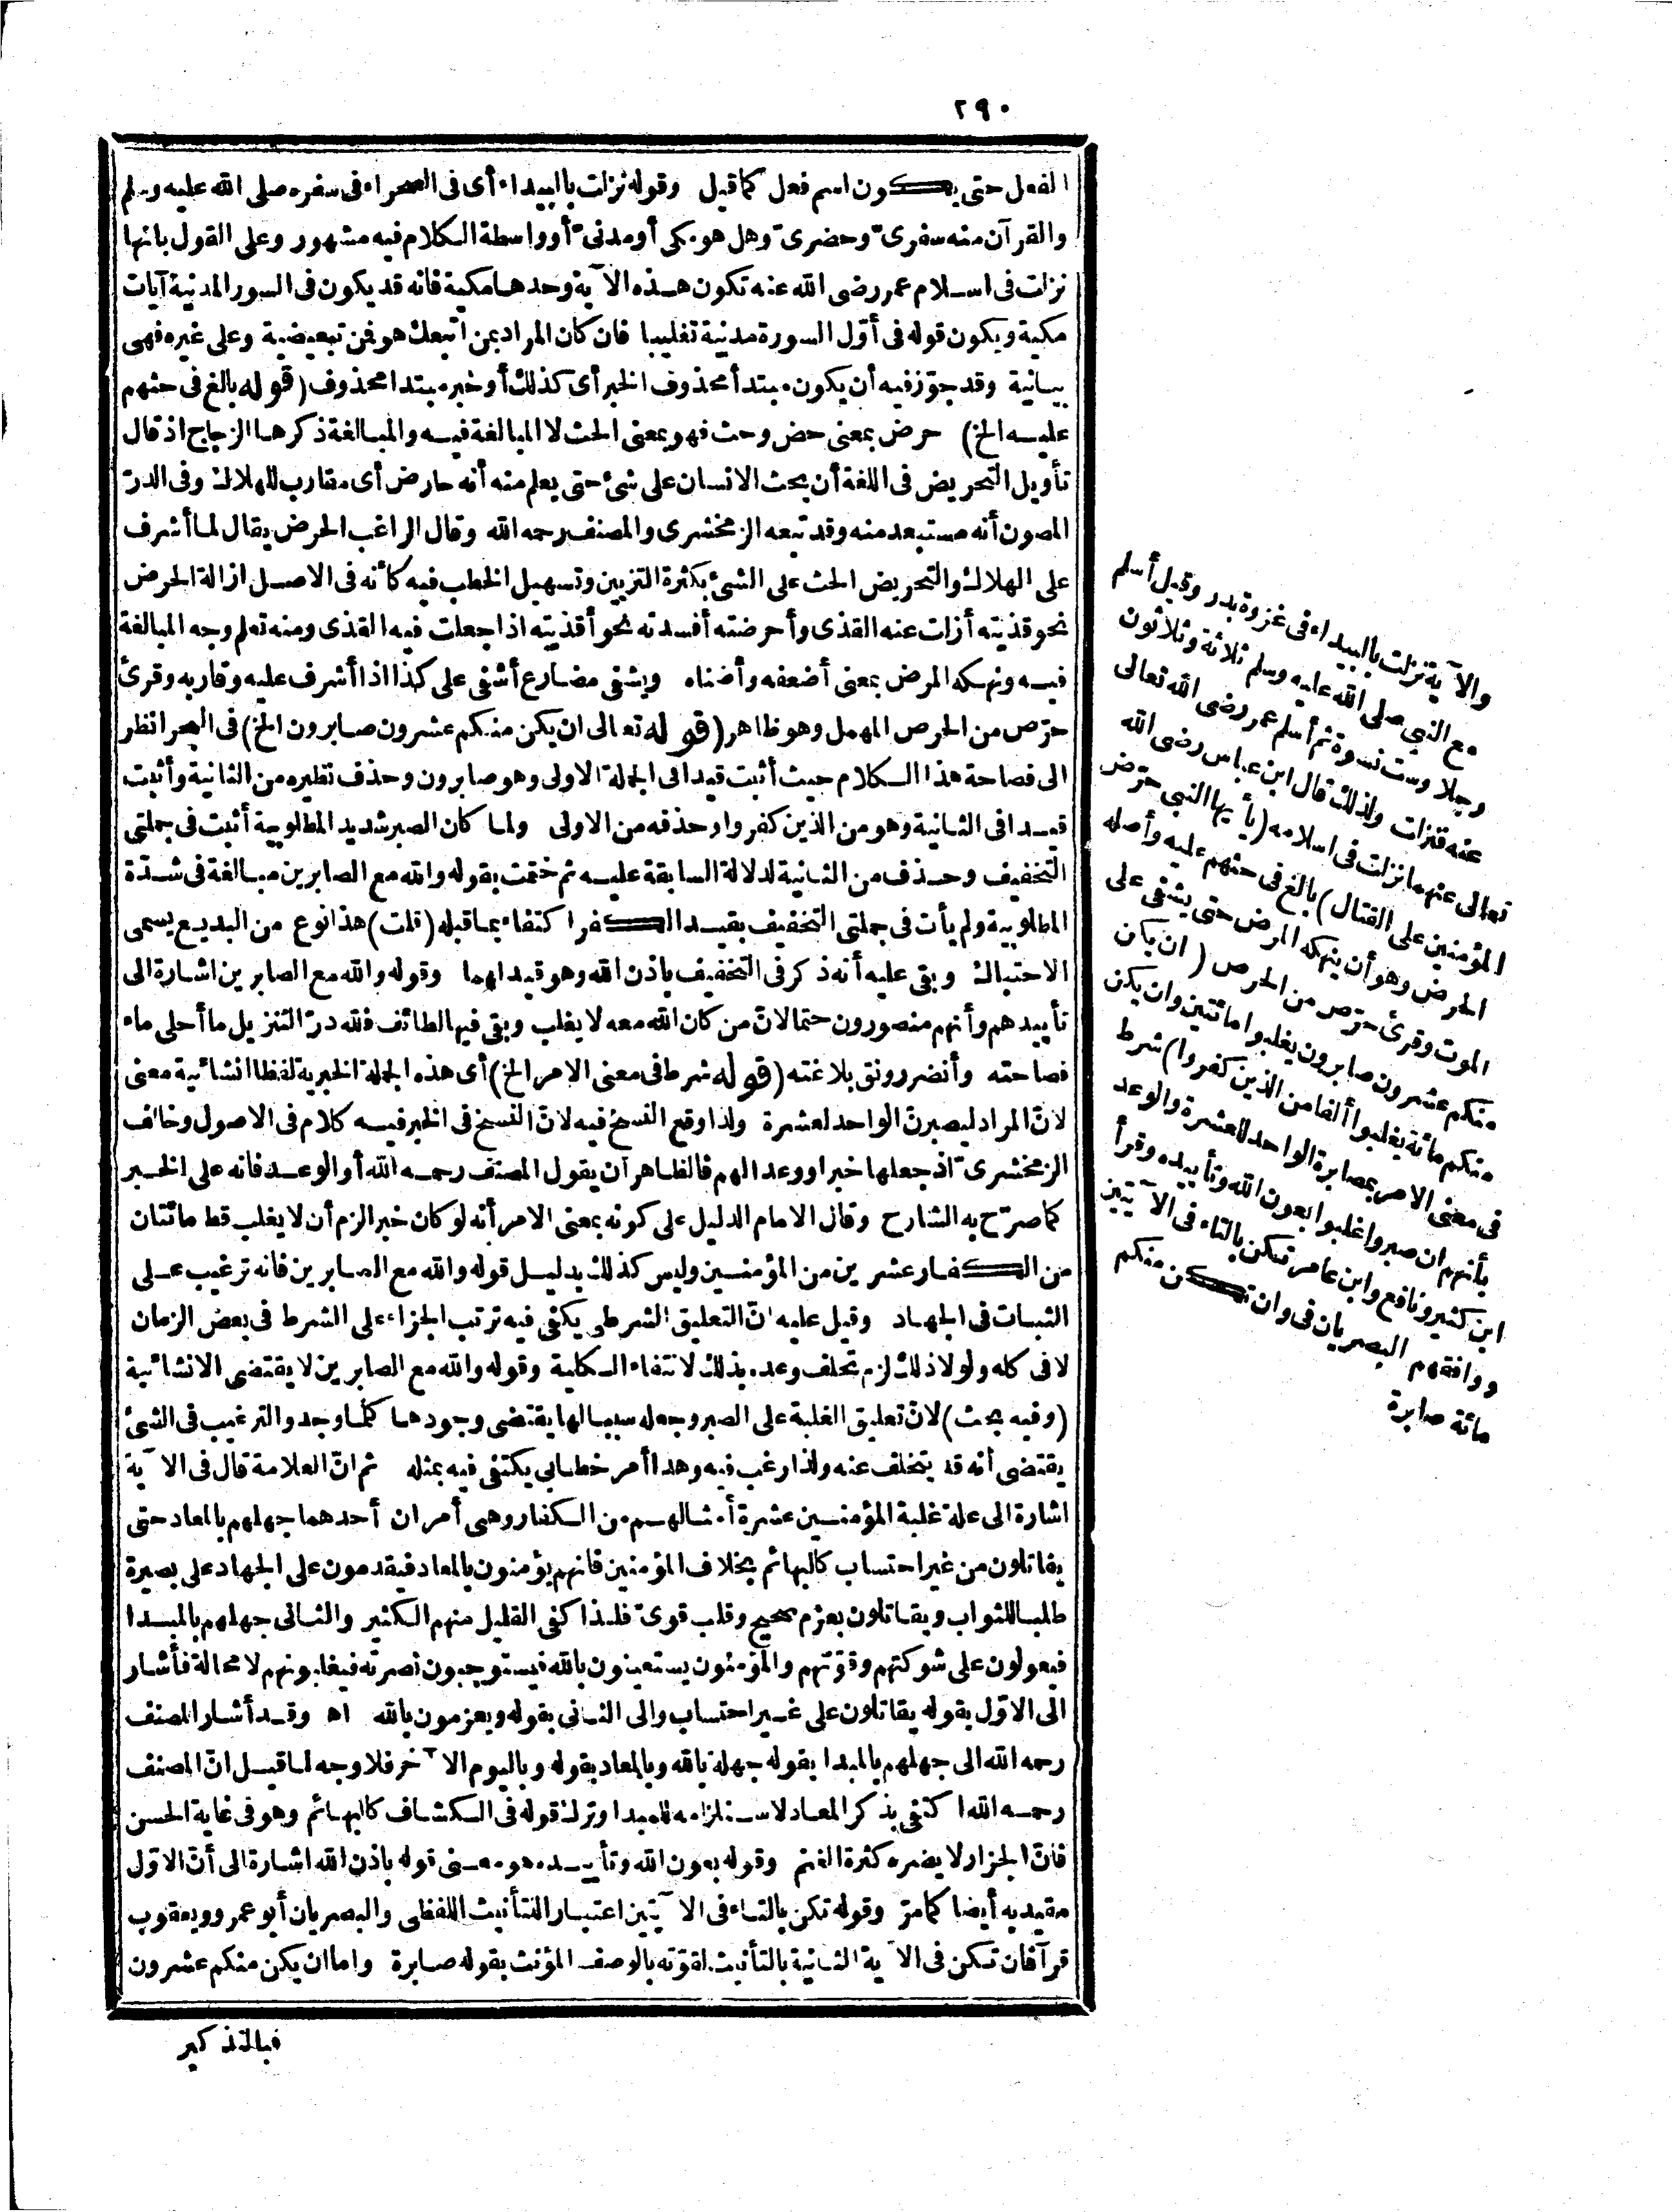 ٢٩٠
الفعل حتى يكون اسم فعل كما قيل وقوله نزلت بالبيداء أى فى الصحراء فى سفره صلى الله عليه وسلم
والقرآن منه سفرىّ وحضرىّ وهل هو مكى أو مدنىّ أو واسطة الكلام فيه مشهور وعلى القول بانها
نزلت فى اسلام عمر رضى الله عنه تكون هذه الآية وحدها مكية فانه قد يكون فى السور المدنية آيات
مكية ويكون قوله فى أوّل السورة مدنية تغليبا فان كان المراد بمن اتبعك هو فمن تبعيضية وعلى غيره فهى
بيانية وقد جوّز فيه أن يكون مبتدأ محذوف الخبر أى كذلك أو خبر مبتدا محذوف (قوله بالغ فى حثهم
عليه الخ) حرض بمعنى حض وحث فهو بمعنى الحث لا المبالغة فيه والمبالغة ذكرها الزجاج اذ قال
تأويل التحريض فى اللغة أن يحث الانسان على شئ حتى يعلم منه أنه حارض أى مقارب للهلاك وفى الدرّ
المصون أنه مستبعد منه وقد تبعه الزمخشرى والمصنف رحمه الله وقال الراغب الحرض يقال لما أشرف
على الهلاك والتحريض الحث على الشئ بكثرة التزيين وتسهيل الخطب فيه كأنه فى الاصل ازالة الحرض
نحو قذيته أزلت عنه القذى وأحرضته أفسدته نحو أقذيته اذا جعلت فيه القذى ومنه تعلم وجه المبالغة
فيه ونهكه المرض بمعنى أضعفه وأضناه ويشفى مضارع أشفى على كذا اذا أشرف عليه وقاربه وقرئ
حرّص من الحرص المهمل وهو ظاهر (قوله تعالى ان يكن منكم عشرون صابرون الخ) فى البحر انظر
الى فصاحة هذا الكلام حيث أثبت قيدا فى الجملة الاولى وهو صابرون وحذف نظيره من الثانية وأثبت
قيدا فى الثانية وهو من الذين كفروا وحذفه من الاولى ولما كان الصبر شديد المطلوبية أثبت فى جملتى
التخفيف وحذف من الثانية لدلالة السابقة عليه ثم ختمت بقوله والله مع الصابرين مبالغة فى شدّة
المطلوبية ولم يأت فى جملتى التخفيف بقيد الكفر اكتفاء بما قبله (قلت) هذا نوع من البديع يسمى
الاحتباك وبقى عليه أنه ذكر فى التخفيف باذن الله وهو قيد لهما وقوله والله مع الصابرين اشارة الى
تأييدهم وأنهم منصورون حتما لانّ من كان الله معه لا يغلب وبقى فيها لطائف فلله درّ التنزيل ما أحلى ماء
فصاحته وأنضر رونق بلاغته (قوله شرط فى معنى الامر الخ) أى هذه الجملة الخبرية لفظا انشائية معنى
لانّ المراد ليصبرنّ الواحد لعشرة ولذا وقع النسخ فيه لانّ النسخ فى الخبر فيه كلام فى الاصول وخالف
الزمخشرىّ اذ جعلها خبرا ووعدا لهم فالظاهر أن يقول المصنف رحمه الله أو الوعد فانه على الخبر
كما صرّح به الشارح وقال الامام الدليل على كونه بمعنى الامر أنه لو كان خبر الزم أن لا يغلب قط مائتان
من الكفار عشرين من المؤمنين وليس كذلك بدليل قوله والله مع الصابرين فانه ترغيب على
الثبات فى الجهاد وقيل عليه انّ التعليق الشرطى يكفى فيه ترتب الجزاء على الشرط فى بعض الزمان
لا فى كله ولولا ذلك لزم تخلف وعده بذلك لانتفاء الكلية وقوله والله مع الصابرين لا يقتضى الانشائية
(وفيه بحث) لانّ تعليق الغلبة على الصبر وجعله سببا لها يقتضى وجودها كلما وجد والترغيب فى الشئ
يقتضى أنه قد يتخلف عنه ولذا رغب فيه وهذا أمر خطابى يكتفى فيه بمثله ثم انّ العلامة قال فى الآية
اشارة الى علة غلبة المؤمنين عشرة أمثالهم من الكفار وهى أمران أحدهما جهلهم بالمعاد حتى
يقاتلون من غير احتساب كالبهائم بخلاف المؤمنين فانهم يؤمنون بالمعاد فيقدمون على الجهاد على بصيرة
طلبا للثواب ويقاتلون بعزم صحيح وقلب قوىّ فلذا كفى القليل منهم الكثير والثانى جهلهم بالمبدا
فيعولون على شوكتهم وقوّتهم والمؤمنون يستعينون بالله فيستوجبون نصرته فيغلبونهم لا محالة فأشار
الى الاوّل بقوله يقاتلون على غير احتساب والى الثانى بقوله ويعزمون بالله اه وقد أشار المصنف
رحمه الله الى جهلهم بالمبدا بقوله جهلة بالله وبالمعاد بقوله وباليوم الآخر فلا وجه لما قيل انّ المصنف
رحمه الله اكتفى بذكر المعاد لاستلزامه للمبدا وترك قوله فى الكشاف كالبهائم وهو فى غاية الحسن
فانّ الجزار لا يضره كثرة الغنم وقوله بعون الله وتأييده هو معنى قوله باذن الله اشارة الى أنّ الاوّل
مقيد به أيضا كما مرّ وقوله تكن بالتاء فى الآيتين اعتبار للتأنيث اللفظى والبصريان أبو عمرو ويعقوب
قرآ فان تكن فى الآية الثانية بالتأنيث لقوّته بالوصف المؤنث بقوله صابرة واما ان يكن منكم عشرون
فبالتذكير
والآية نزلت بالبيداء فى غزوة بدر وقيل أسلم
مع النبى صلى الله عليه وسلم ثلاثة وثلاثون
رجلا وست نسوة ثم أسلم عمر رضى الله تعالى
عنه فنزلت ولذلك قال ابن عباس رضى الله
تعالى عنهما نزلت فى اسلامه (يأيها النبى حرّض
المؤمنين على القتال) بالغ فى حثهم عليه وأصله
الحرض وهو أن ينهكه المرض حتى يشفى على
الموت وقرئ حرّص من الحرص (ان يكن
منكم عشرون صابرون يغلبوا مائتين وان يكن
منكم مائة يغلبوا ألفا من الذين كفروا) شرط
فى معنى الامر بمصابرة الواحد للعشرة والوعد
بأنهم ان صبروا غلبوا بعون الله وتأييده وقرأ
ابن كثير ونافع وابن عامر تكن بالتاء فى الآيتين
ووافقهم البصريان فى وان تكن منكم
مائة صابرة